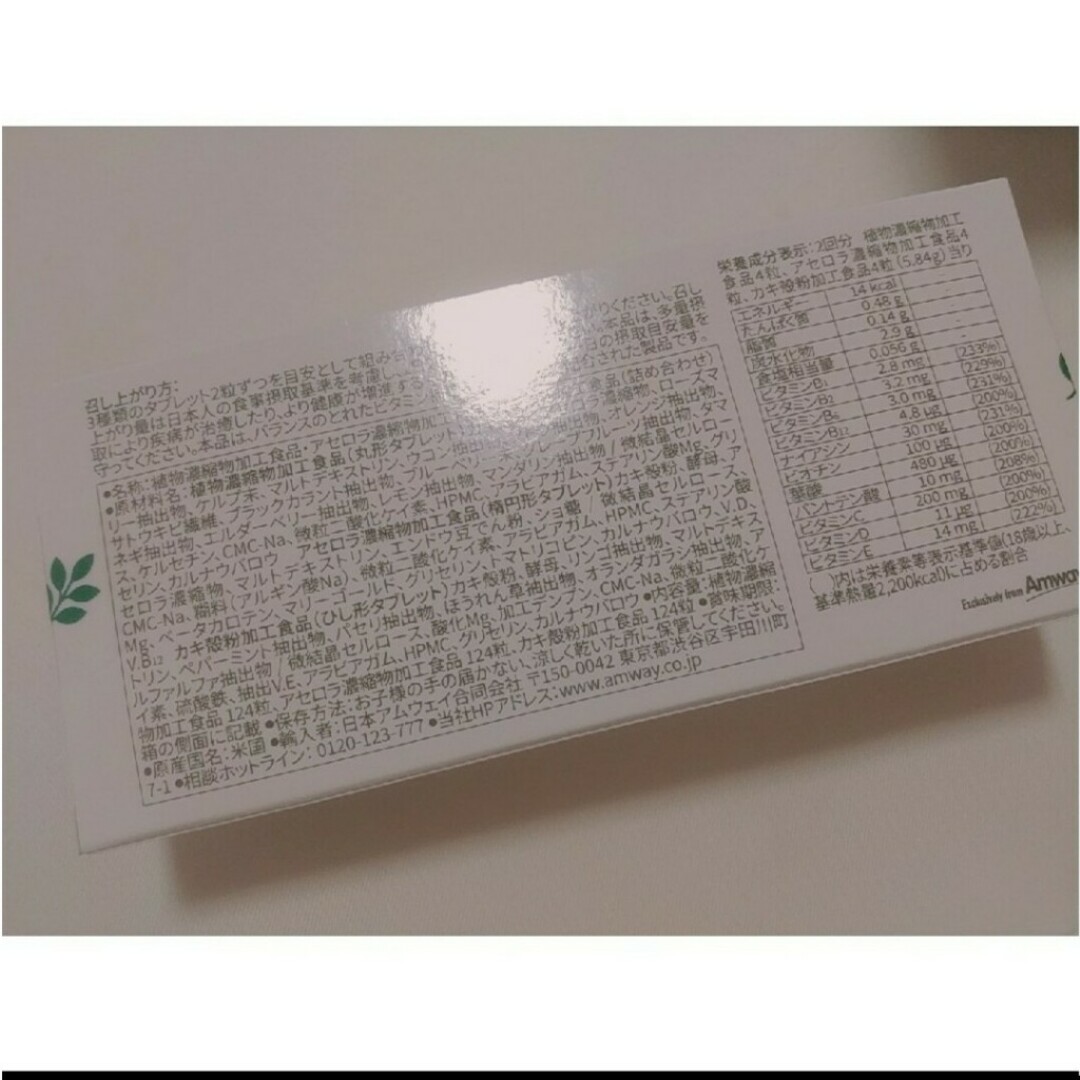 召し上がり方:
3種類のタブレット2粒ずつを目安として組み合 りください。召し
上がり量は日本人の食事摂取基準を考慮し 本品は、多量摂
取により疾病が治癒したり、より健康が増進する 日の摂取目安量を
守ってください。本品は、バランスのとれたビタミン された製品です。
●名称:植物濃縮物加工食品・アセロラ濃縮物加 食品(詰め合わせ)
●原材料名:植物濃縮物加工食品(丸形タブレット) 濃縮物、ローズマ
リー抽出物、ケルプ末、マルトデキストリン、ウコン抽出 オレンジ抽出物、
サトウキビ繊維、ブラックカラント抽出物、ブルーベリー フルーツ抽出物、タマ
ネギ抽出物、エルダーベリー抽出物、レモン抽出物、マンダリン抽出物/微結晶セルロー
ス、ケルセチン、CMC-Na、微粒二酸化ケイ素、HPMC、アラビアガム、ステアリン酸Mg、グリ
セリン、カルナウバロウ アセロラ濃縮物加工食品(楕円形タブレット)カキ殻粉、酵母、ア
セロラ濃縮物、マルトデキストリン、エンドウ豆でん粉、ショ糖/微結晶セルロース、
CMC-Na、糊料(アルギン酸Na)、微粒二酸化ケイ素、アラビアガム、HPMC、ステアリン酸
Mg、ベータカロテン、マリーゴールド、グリセリン、トマトリコピン、カルナウバロウ、V.D、
V.B₁₂ カキ殻粉加工食品(ひし形タブレット)カキ殻粉、酵母、リンゴ抽出物、マルトデキス
トリン、ペパーミント抽出物、パセリ抽出物、ほうれん草抽出物、オランダガラシ抽出物、ア
ルファルファ抽出物/微結晶セルロース、酸化Mg、加工デンプン、CMC-Na、微粒二酸化ケ
イ素、硫酸鉄、抽出V.E、アラビアガム、HPMC、グリセリン、カルナウバロウ ●内容量:植物濃縮
物加工食品124粒、アセロラ濃縮物加工食品124粒、カキ殻粉加工食品124粒 ●賞味期限:
箱の側面に記載 ●保存方法:お子様の手の届かない、涼しく乾いた所に保管してください。
●原産国名:米国 ●輸入者:日本アムウェイ合同会社 〒150-0042 東京都渋谷区宇田川町
7-1 ●相談ホットライン:0120-123-777 ●当社HPアドレス:www.amway.co.jp
栄養成分表示:2回分 植物濃縮物加工
食品4粒、アセロラ濃縮物加工食品4
粒、カキ殻粉加工食品4粒(5.84g)当り
エネルギー 14 kcal -
たんぱく質 0.48 g -
脂質 0.14 g -
炭水化物 2.9 g -
食塩相当量 0.056 g -
ビタミンB₁ 2.8 mg (233%)
ビタミンB₂ 3.2 mg (229%)
ビタミンB₆ 3.0 mg (231%)
ビタミンB₁₂ 4.8 µg (200%)
ナイアシン 30 mg (231%)
ビオチン 100 µg (200%)
葉酸 480 µg (200%)
パントテン酸 10 mg (208%)
ビタミンC 200 mg (200%)
ビタミンD 11 µg (200%)
ビタミンE 14 mg (222%)
( )内は栄養素等表示基準値(18歳以上、
基準熱量2,200kcal)に占める割合
Exclusively from Amway